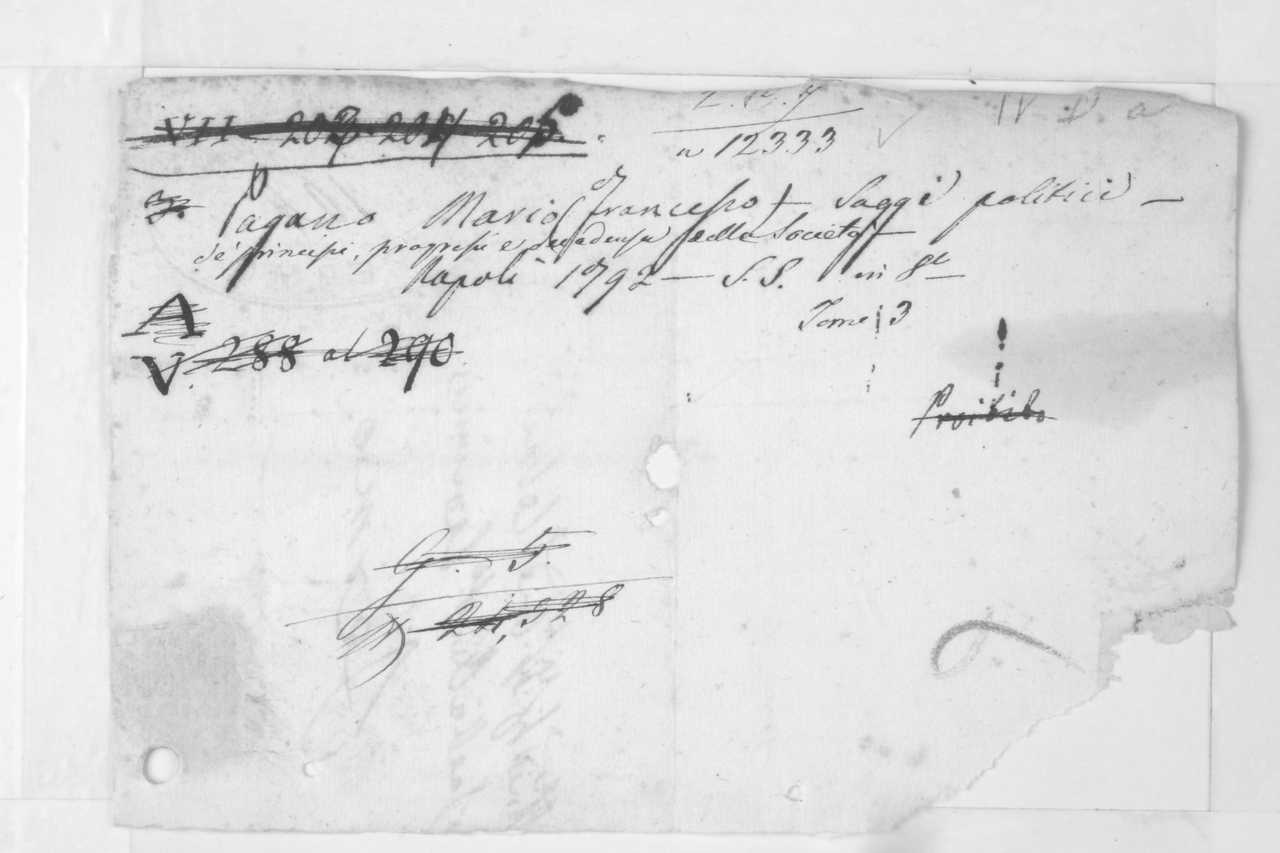 VII 203 204 205
n 12333
Pagano Mario Francesco Saggi politici —
de' principi, progressi e decadenza della Società —
Napoli 1792 — S. S. in 8°
Tomi 3
A
V. 288 al 290
Proibito
G. 5.
24,528